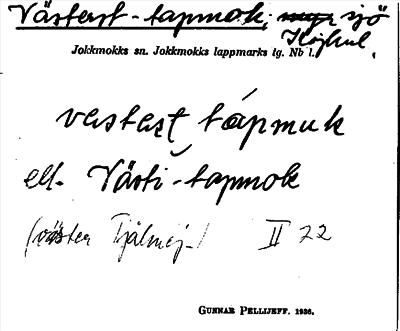 Västerst-tapmok, sjö
Jokkmokks sn. Jokkmokks lappmarks tg. Nb l.
vesterst tápmuk
ell. Västi-tapmok
(väster Tjålmej-) II 22
GUNNAR PELLIJEFF. 1936.